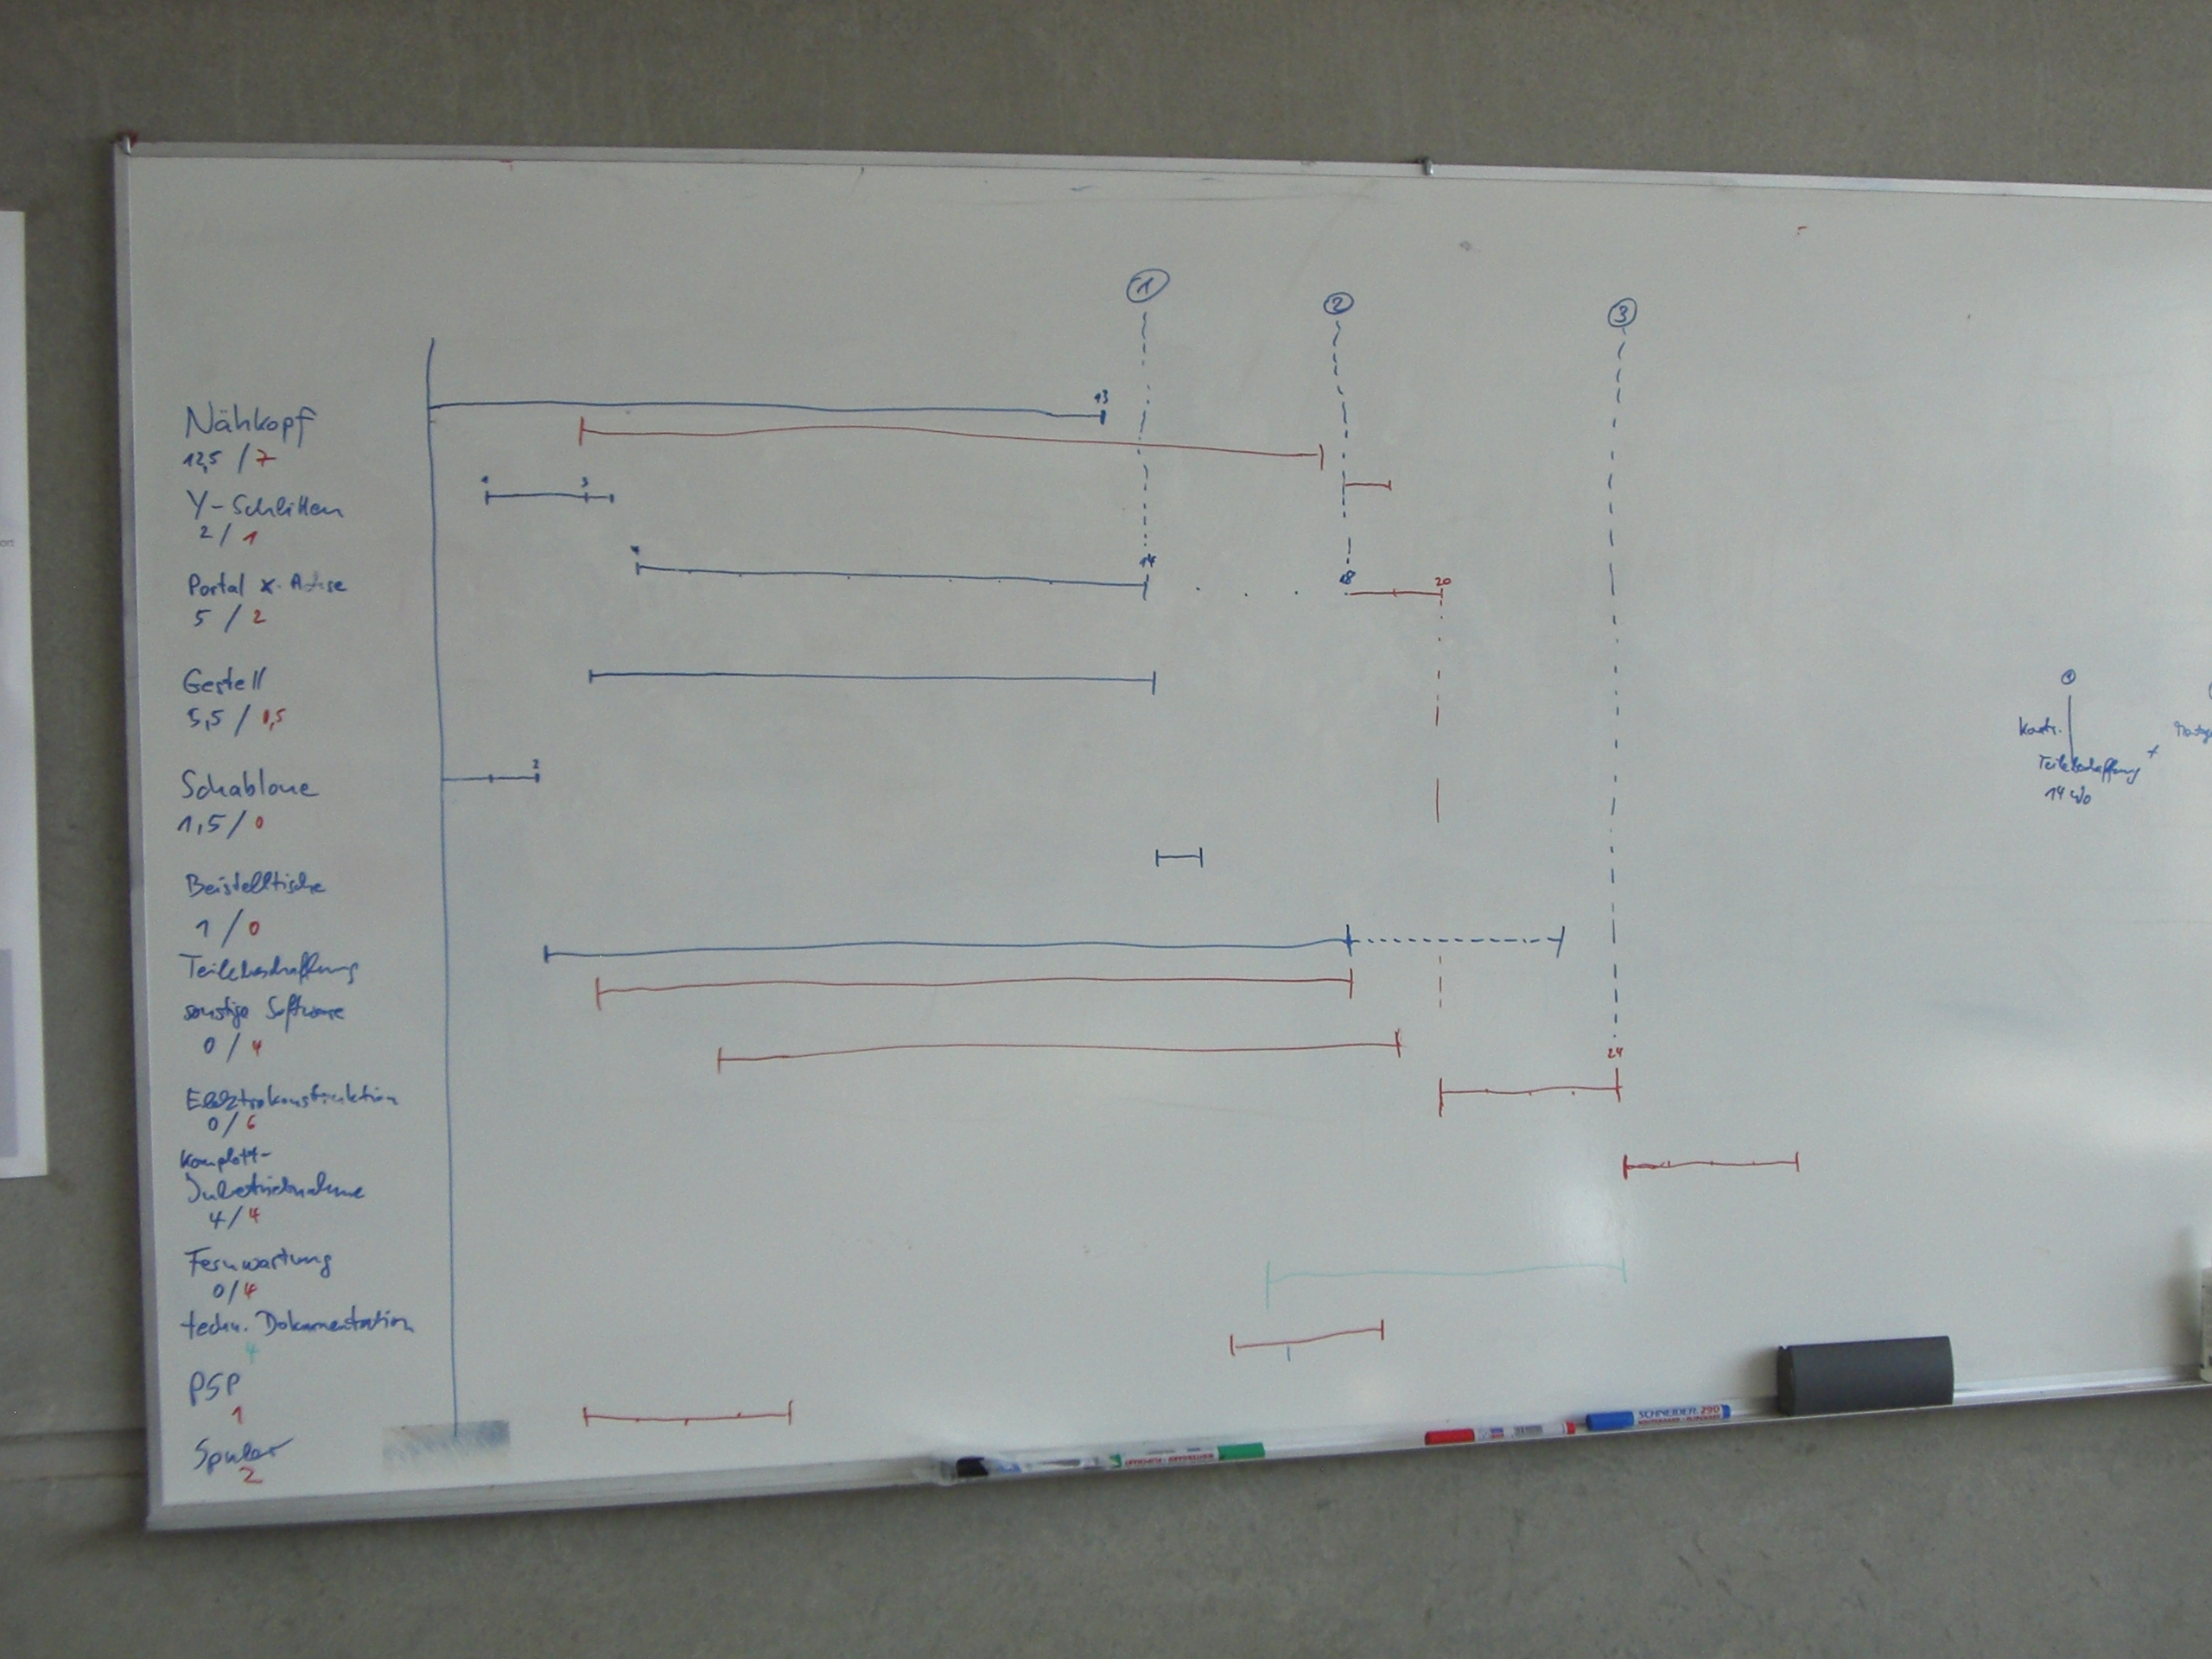 1
2
3
13
Nähkopf
12,5 / 7
1 3
Y-Schlitten
2 / 1
4 14 18 20
Portal x-Achse
5 / 2
Gestell
5,5 / 1,5
2
Schablone
1,5 / 0
Beistelltische
1 / 0
Teilebeschaffung
sonstige Software
0 / 4
24
Elektrokonstruktion
0/6
Komplett-
Inbetriebnahme
4/4
Fernwartung
0/4
techn. Dokumentation
4
PSP
1
Spuler
2
Konstr.
Teilebeschaffung +
14 Wo
SCHNEIDER 290